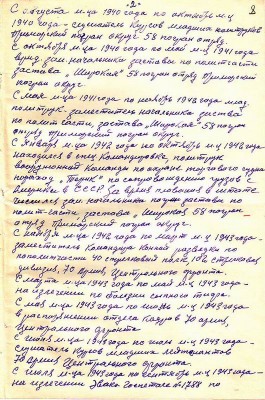 -2-
8
С августа м-ца 1940 года по октябрь м-ц
1940 года - слушатель Курсов младших политруков
Приморский погран округ 58 погранотряд.
С октября м-ца 1940 года по май м-ц 1941 года
врид. зам. начальника заставы по политчасти
застава „Широкая" 58 погран отряд Приморский
погран округ.
С мая м-ца 1941 года по ноябрь 1943 года мл.
политрук, заместитель начальника заставы
по политчасти, застава „Широкая" 58 погран
отряд Приморский погран округ.
С января м-ца 1942 года по октябрь м-ц 1942 года
находился в спец. Командировке, политрук
вооруженной Команды по охране торгового судна
пароход по сопровождению грузов с
Америки в СССР. За время плавания в штате
числился зам. начальника погран заставы по
полит-части застава „Широкая" 58 погран
отряд Приморский погран округ.
С м-ца 1942 года по март м-ц 1943 года -
заместитель Командира Конной разведки по
политчасти 40 стрелковый полк, 102 стрелковая
дивизия, 70 армия, Центрального фронта.
С марта м-ца 1943 года по май м-ц 1943 года -
на излечении по болезни сыпного тифа.
С мая м-ца 1943 года по июнь м-ц 1943 года
в распоряжении отдела Кадров 70 армии,
Центрального фронта
С июня м-ца 1943 года по июль м-ц 1943 года -
слушатель Курсов младших лейтенантов
70 армия Центрального фронта.
С июля м-ца 1943 года по сентябрь м-ц 1943 года -
на излечении Эвако Госпитале № 1788 по